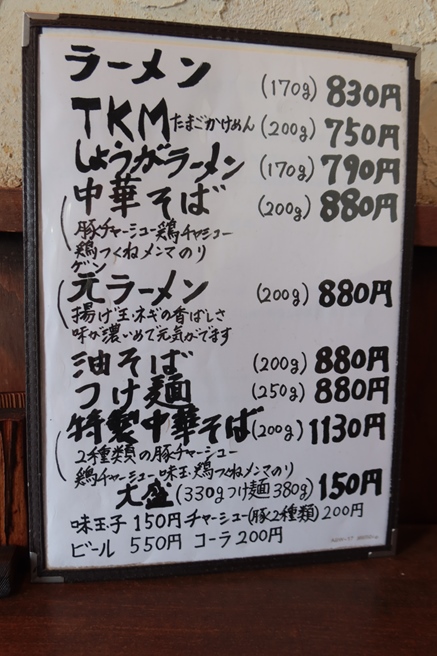 ラーメン (170g) 830円
TKMたまごかけめん (200g) 750円
しょうがラーメン (170g) 790円
中華そば (200g) 880円
(豚チャーシュー鶏チャーシュー
鶏つくねメンマのり
ゲン
元ラーメン (200g) 880円
(揚げ玉・ネギの香ばしさ
味が濃いめで元気がでます
油そば (200g) 880円
つけ麺 (250g) 880円
特製中華そば (200g) 1130円
(2種類の豚チャーシュー
鶏チャーシュー味玉・鶏つくねメンマのり
大盛 (330gつけ麺380g) 150円
味玉子 150円 チャーシュー(豚2種類) 200円
ビール 550円 コーラ 200円